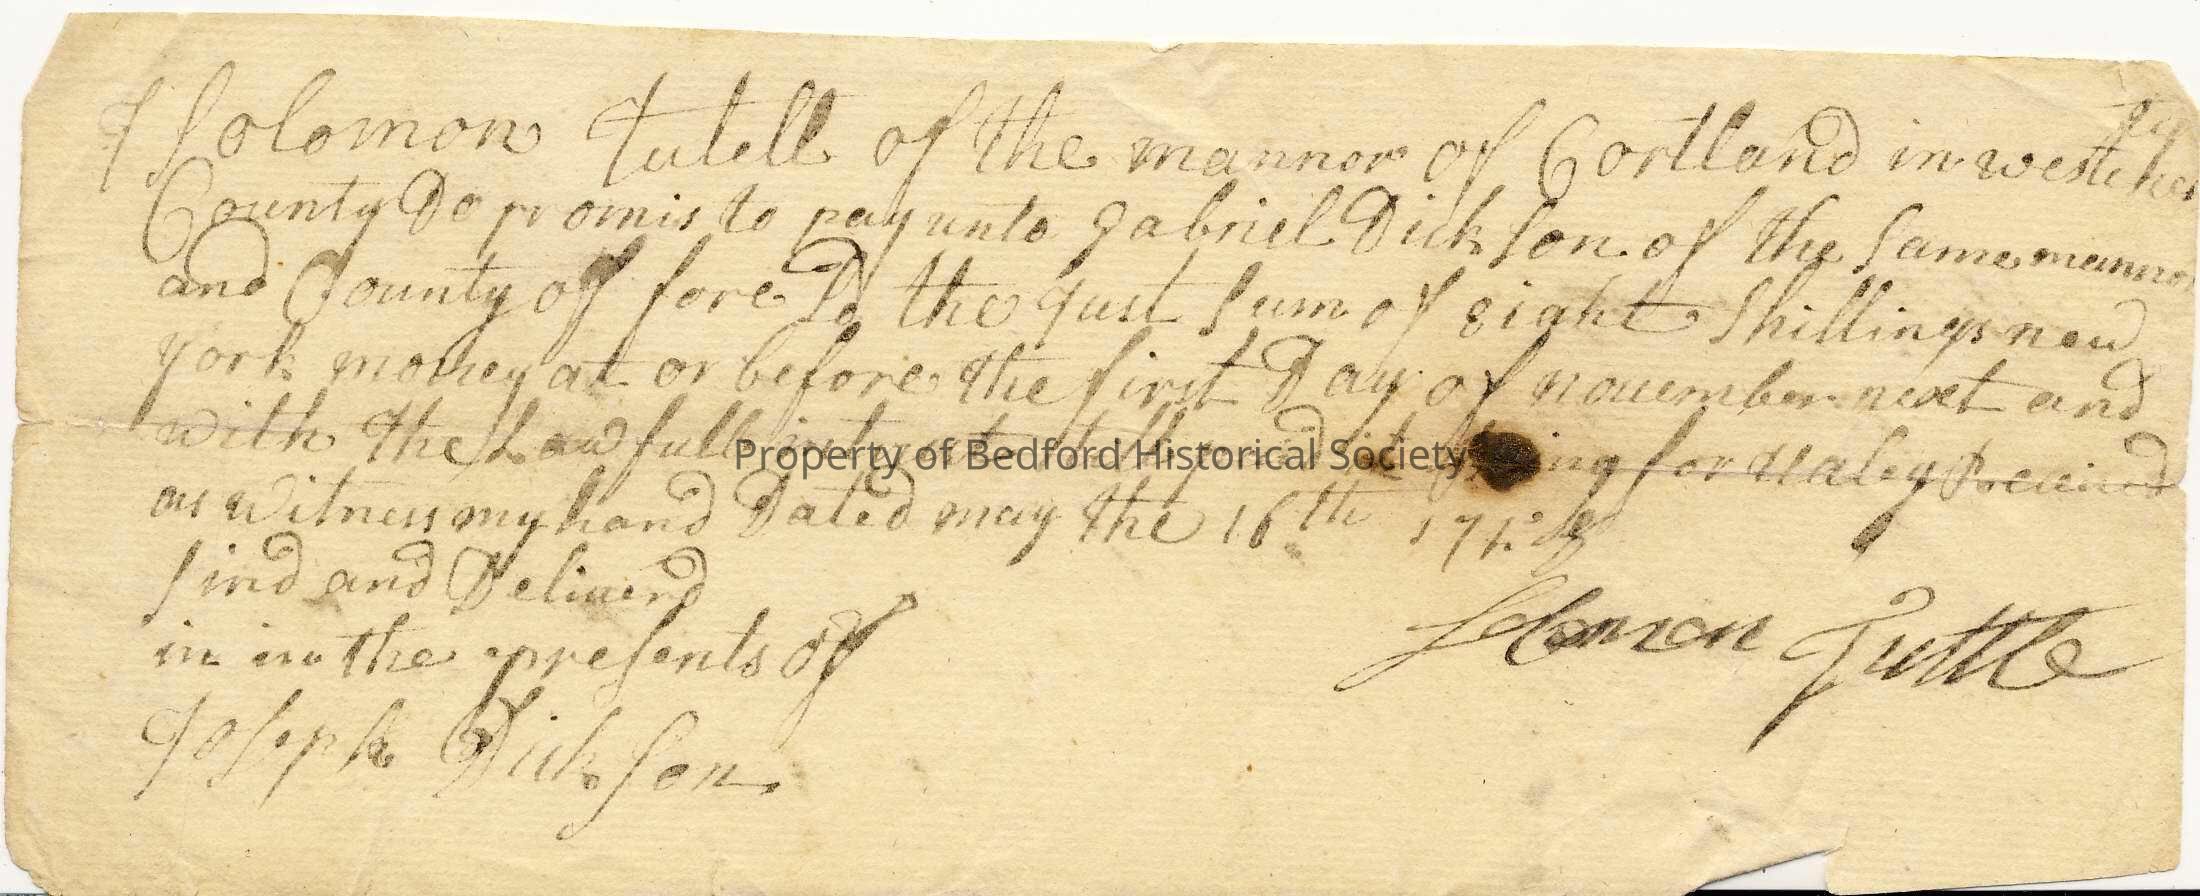 I Solomon Tutell of the mannor of Cortland in westcher
County Do promis to pay unto gabriel Dickson of the Same mannor
and County of fore Sd the just Sum of eight Shillings new
york money at or before the first Day of nouember next and
with the Lawfull intrust till paid it being for ualey Receiued
as witness my hand Dated may the 16th
Sind and Deliuerd
in in the presents of
Joseph Dickson
Solomon Tuttle
Property of Bedford Historical Society